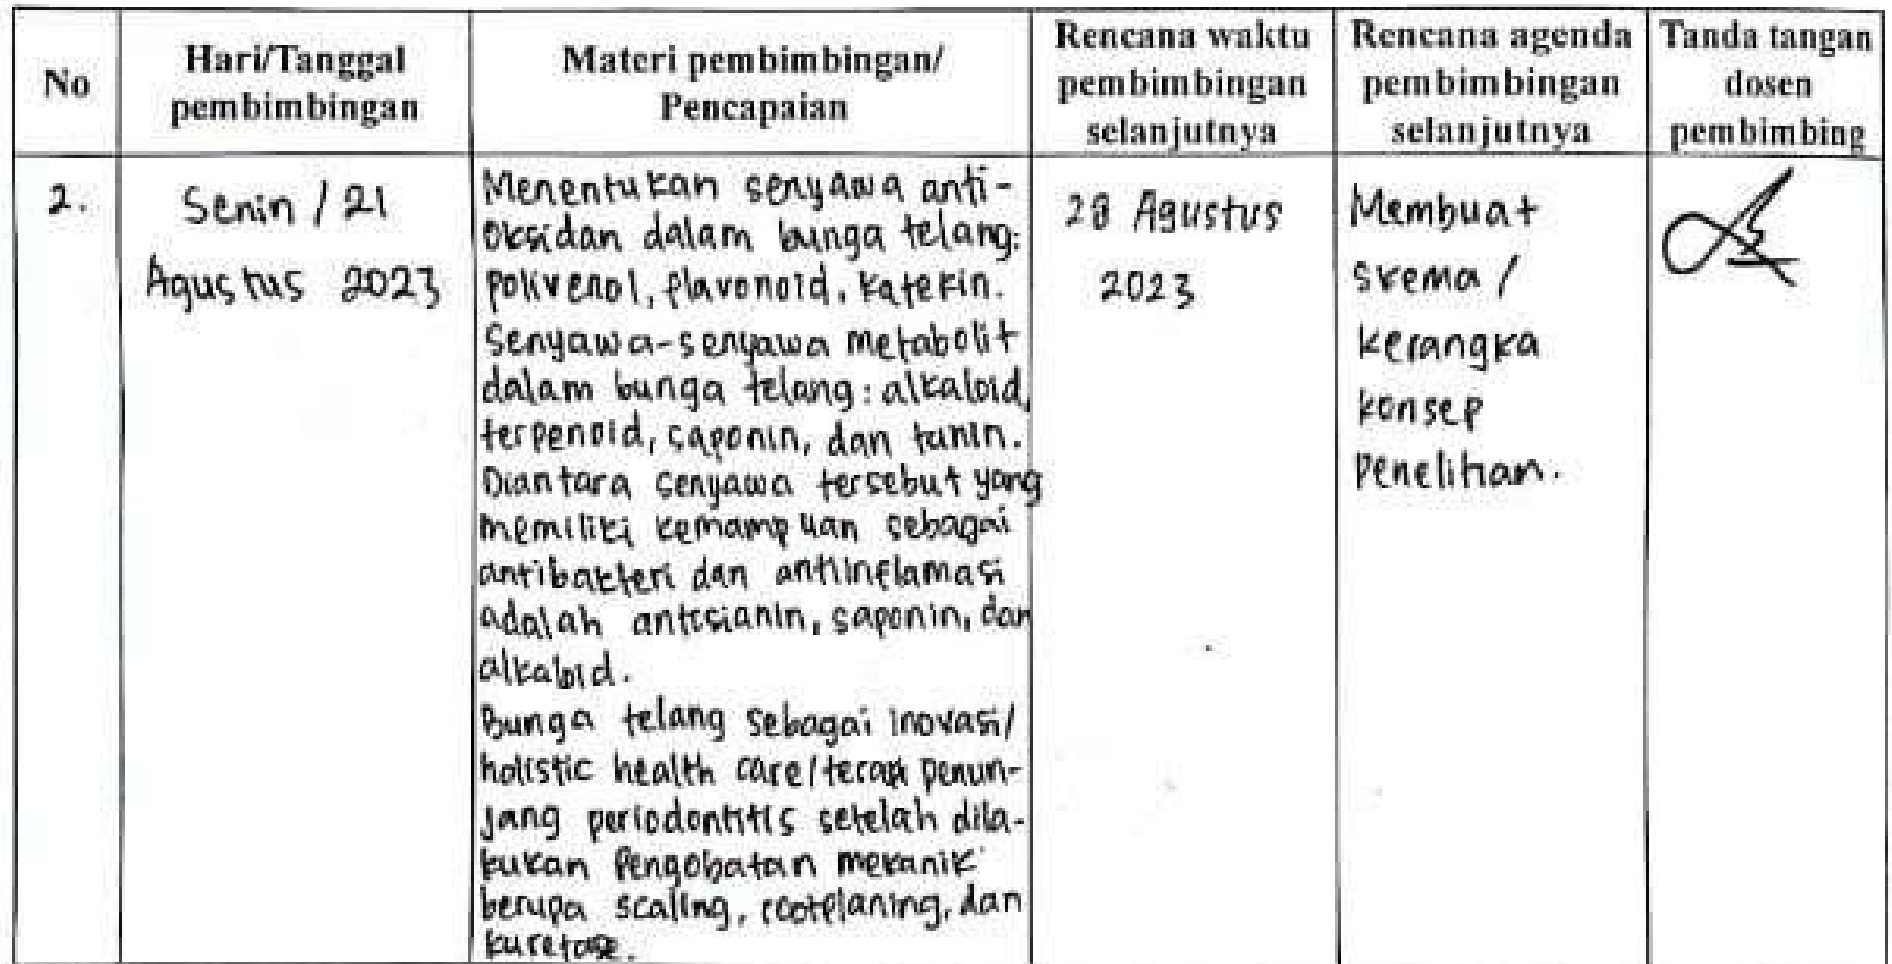 No
Hari/Tanggal
pembimbingan
Materi pembimbingan/
Pencapaian
Rencana waktu
pembimbingan
selanjutnya
Rencana agenda
pembimbingan
selanjutnya
Tanda tangan
dosen
pembimbing
2.
Senin / 21
Agustus 2023
Menentukan senyawa anti-
oksidan dalam bunga telang:
polivenol, flavonoid, katekin.
Senyawa-senyawa metabolit
dalam bunga telang: alkaloid,
terpenoid, saponin, dan tanin.
Diantara senyawa tersebut yang
memiliki kemampuan sebagai
antibakteri dan antiinflamasi
adalah antosianin, saponin, dan
alkaloid.
Bunga telang sebagai inovasi/
holistic health care/terapi penun-
jang periodontitis setelah dila-
kukan Pengobatan mekanik
berupa scaling, rootplaning, dan
kuretase.
28 Agustus
2023
Membuat
skema /
kerangka
konsep
Penelitian.